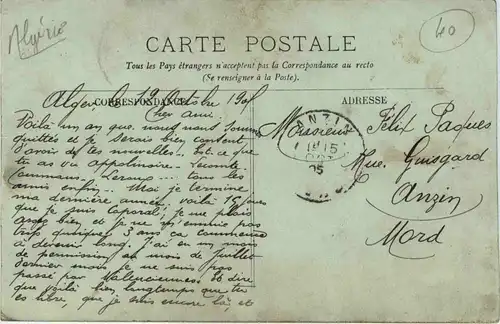 Algérie
40
CARTE POSTALE
Tous les Pays étrangers n'acceptent pas la Correspondance au recto
(Se renseigner à la Poste).
CORRESPONDANCE
ADRESSE
Alger le 12 Octobre 190
Cher ami.
Voilà un an que nous nous sommes
quittés et je serais bien content
d'avoir de tes nouvelles. Est-ce que
tu as vu appolinaire.
tous les
amis enfin. Moi je termine
ma dernière année. voilà 15 jours
que je suis Caporal, je me plais
assez bien et je ne m'ennuie pas
trop quoique 3 ans ça commence
à devenir long. J'ai eu un mois
de permission au mois de Juillet
dernier mais je ne suis pas
passé par Valenciennes. Et dire
que voilà bien longtemps que tu
es libre, que je suis encore là, et
ANZIN
15
OCT
05
Monsieur Félix Paques
Rue Guisgard
Anzin
Nord